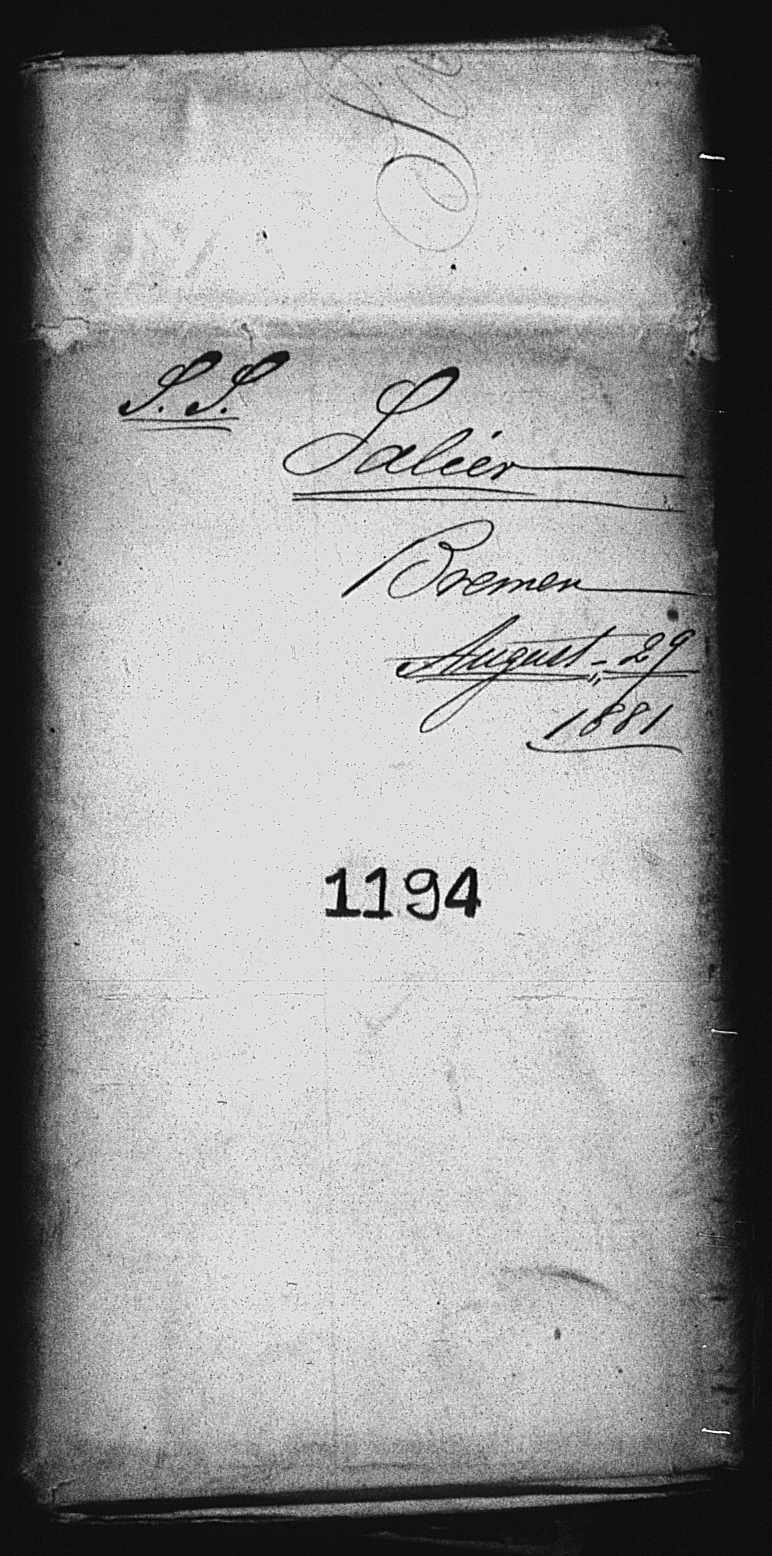 S.S.
Salier
Bremen
August - 29
1881
1194